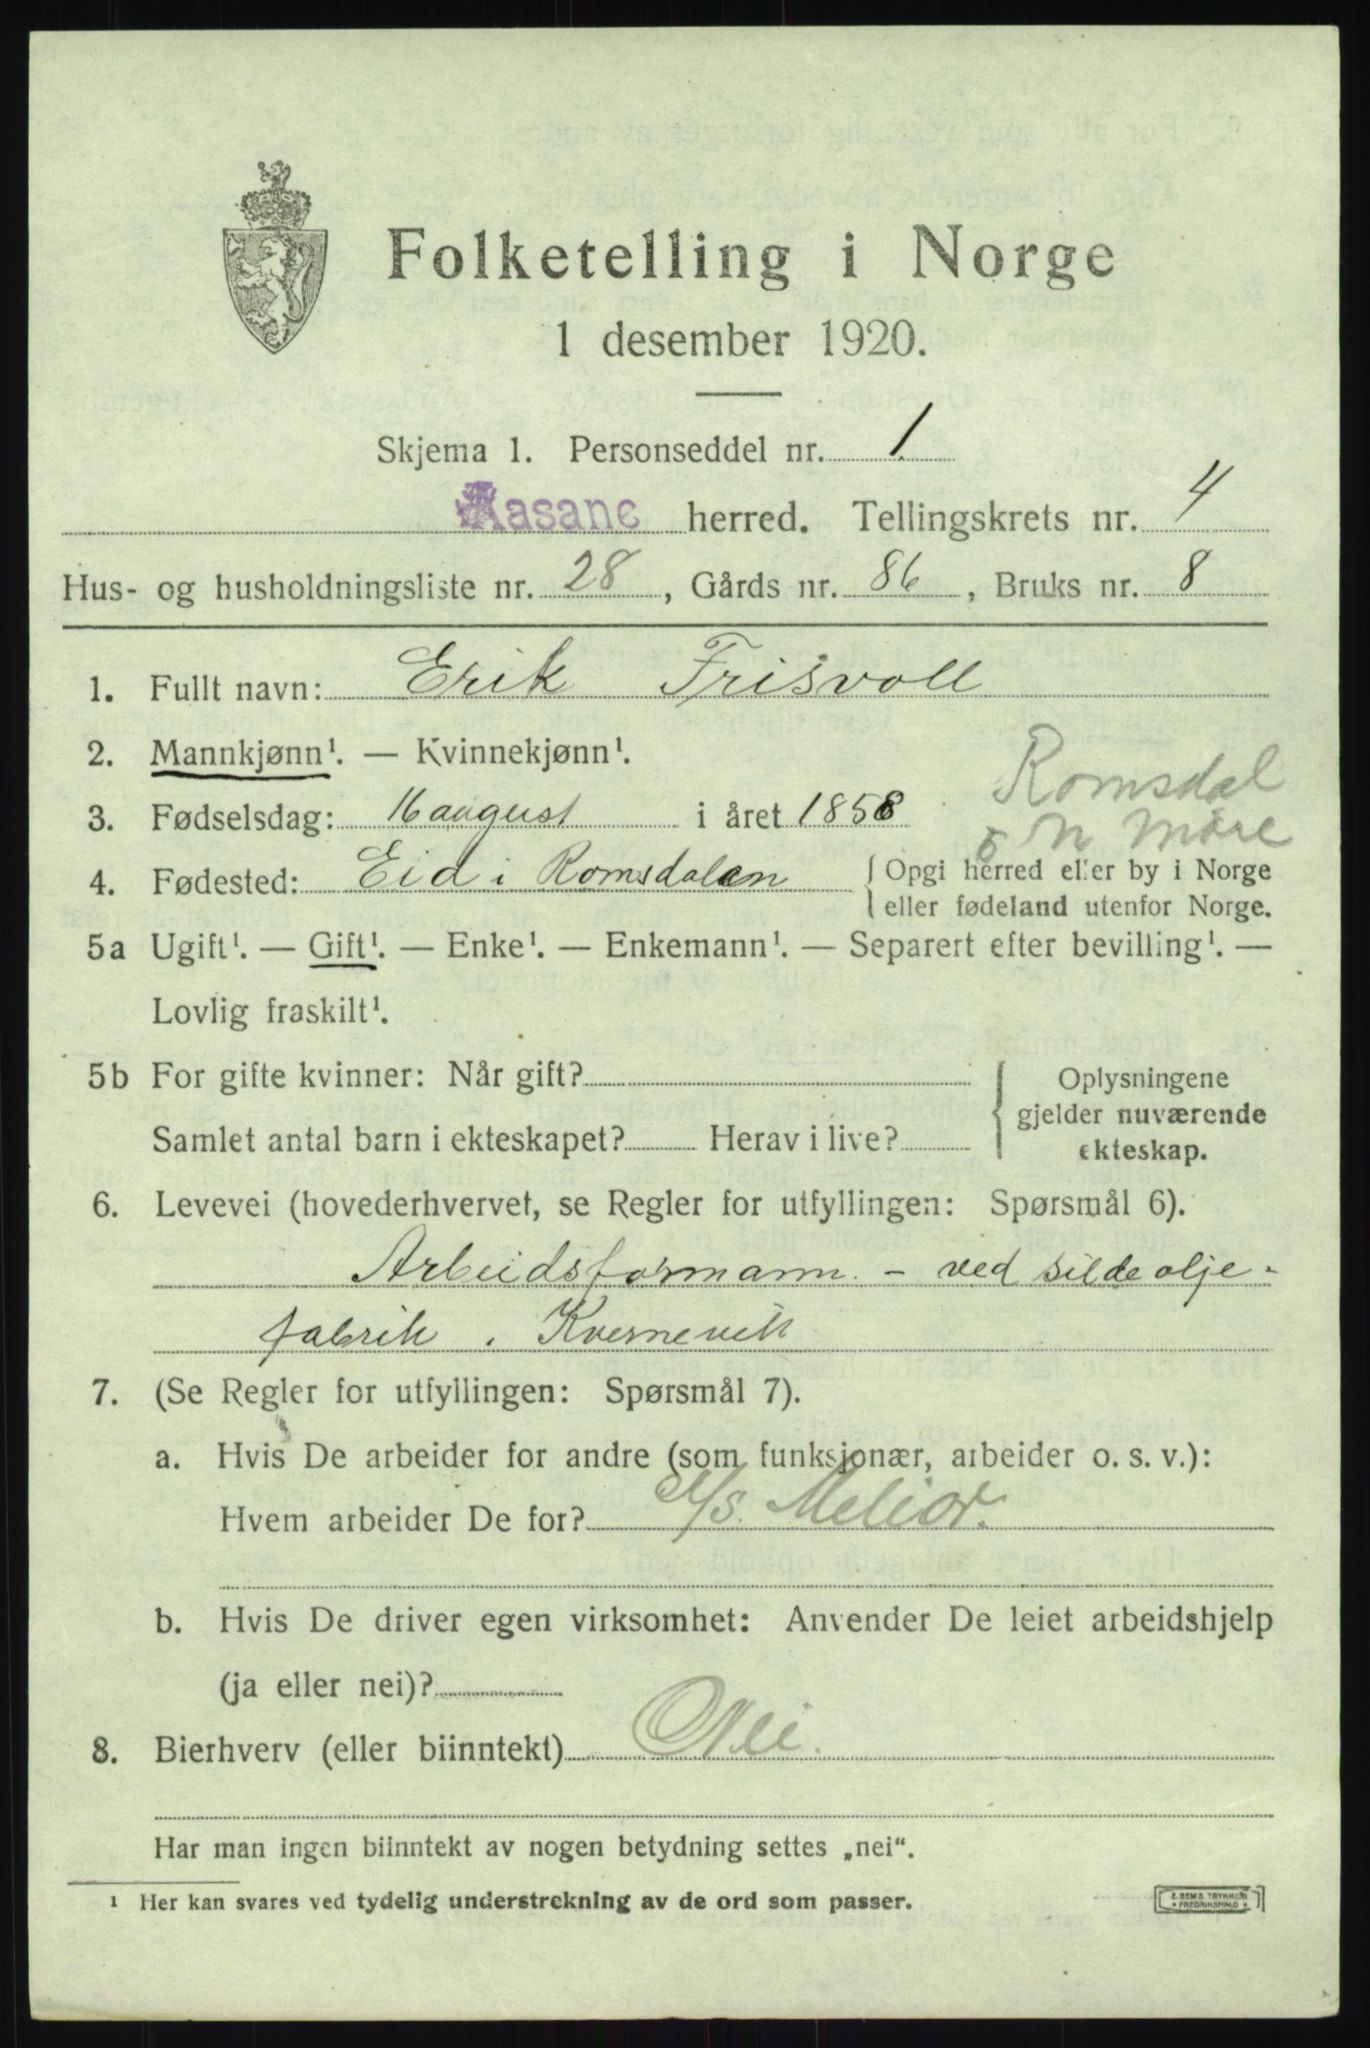 Folketelling i Norge
1 desember 1920.
Skjema 1. Personseddel nr. 1
Aasane herred. Tellingskrets nr. 4
Hus- og husholdningsliste nr. 28, Gårds nr. 86, Bruks nr. 8
1. Fullt navn: Erik Frisvoll
2. Mannkjønn¹. — Kvinnekjønn¹.
Romsdal
3. Fødselsdag: 16 august i året 1858
o N Møre
4. Fødested: Eid i Romsdalen { Opgi herred eller by i Norge
eller fødeland utenfor Norge.
5a Ugift¹. — Gift¹. — Enke¹. — Enkemann¹. — Separert efter bevilling¹. —
Lovlig fraskilt¹.
5b For gifte kvinner: Når gift? { Oplysningene
gjelder nuværende
Samlet antal barn i ekteskapet? Herav i live? ekteskap.
6. Levevei (hovederhvervet, se Regler for utfyllingen: Spørsmål 6).
Arbeidsformann. - ved silde olje-
fabrik i Kvernevik
7. (Se Regler for utfyllingen: Spørsmål 7).
a. Hvis De arbeider for andre (som funksjonær, arbeider o. s. v.):
Hvem arbeider De for? A/S. Melior.
b. Hvis De driver egen virksomhet: Anvender De leiet arbeidshjelp
(ja eller nei)?
8. Bierhverv (eller biinntekt) Nei.
Har man ingen biinntekt av nogen betydning settes „nei“.
¹ Her kan svares ved tydelig understrekning av de ord som passer.
E. SEMS TRYKKERI
FREDRIKSHALD